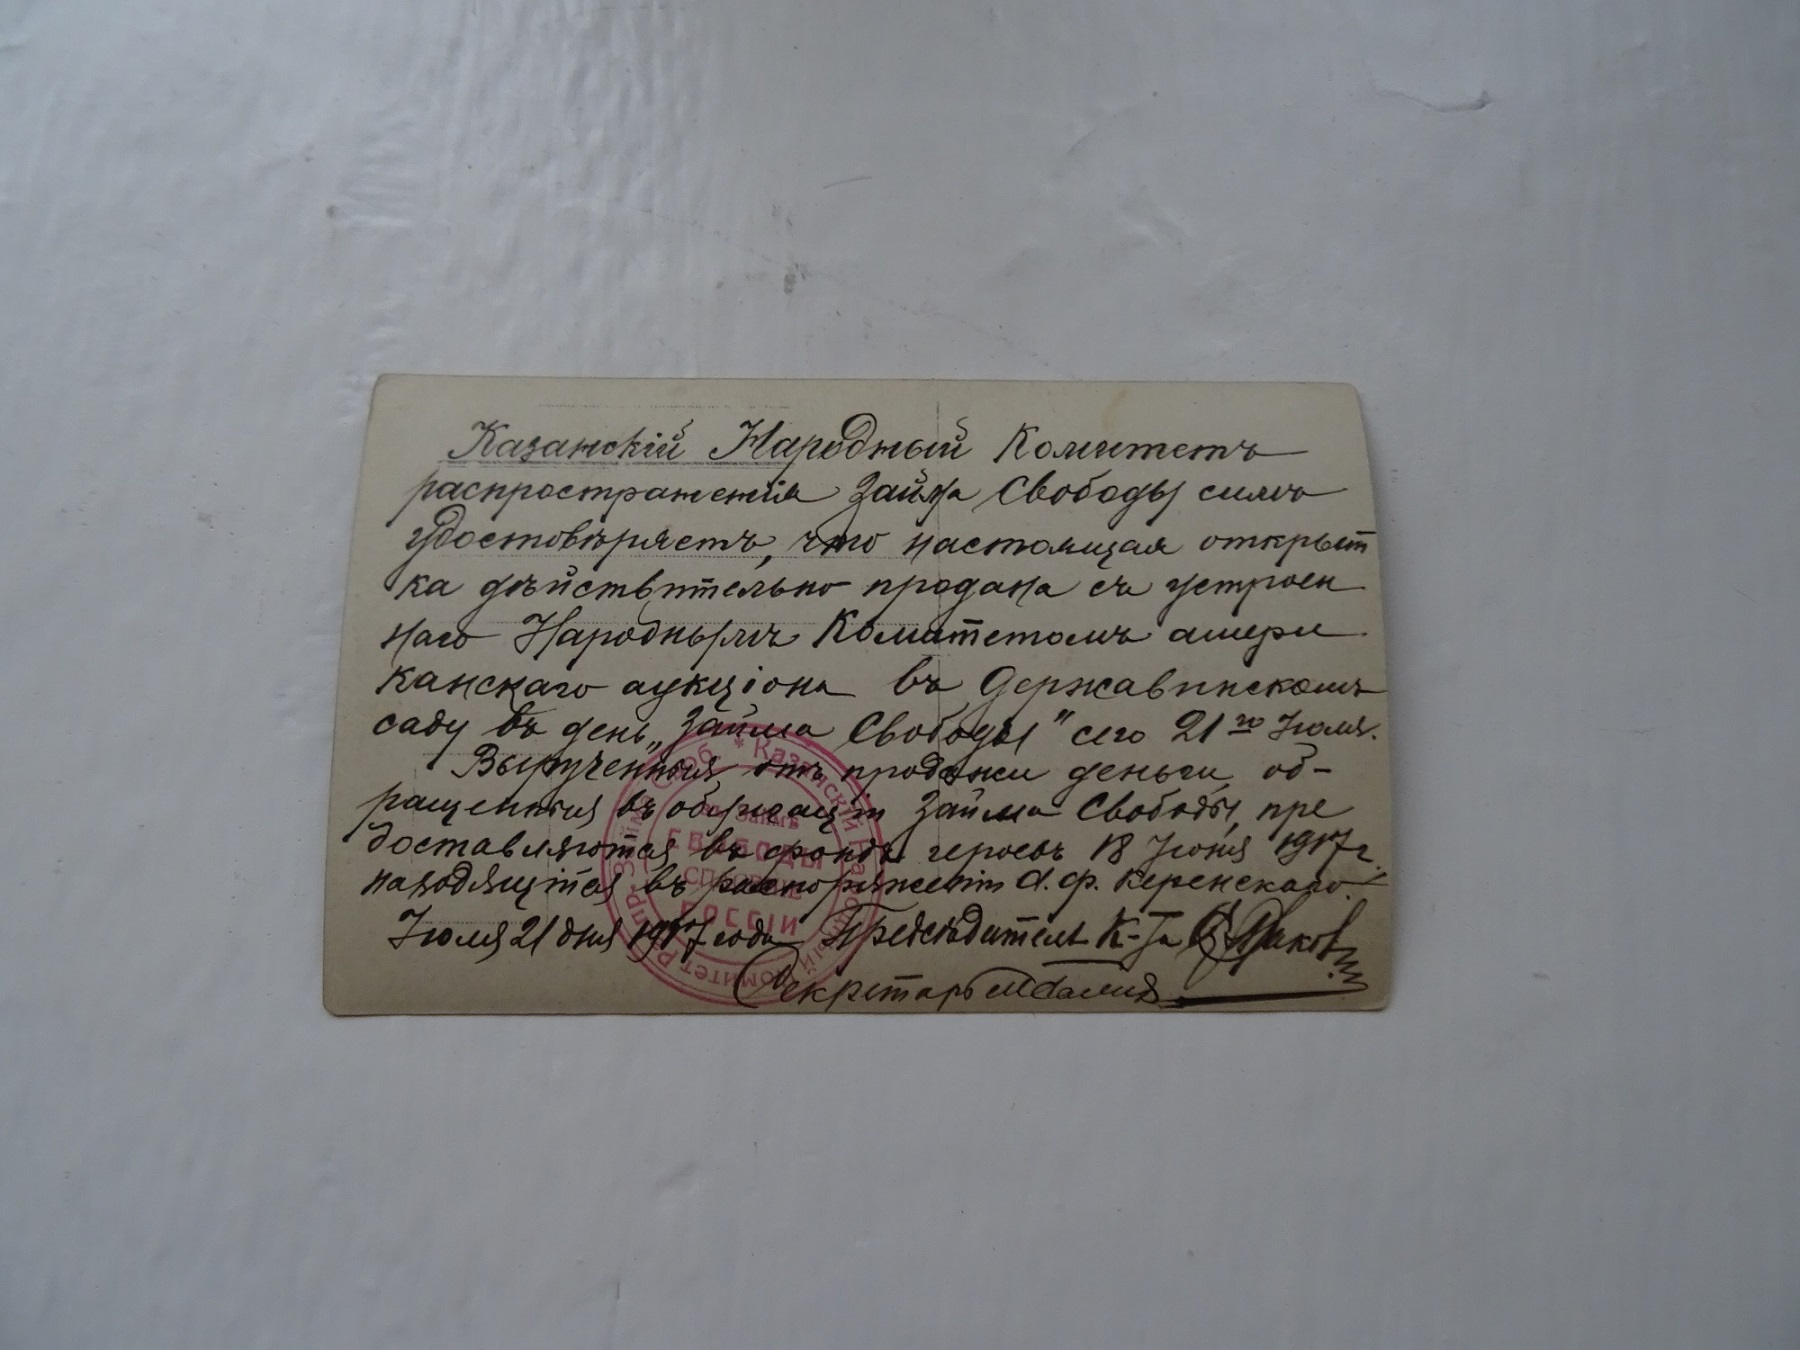 Казанскій Народный Комитетъ
распространенія Займа Свободы симъ
удостовѣряетъ, что настоящая открыт
ка дѣйствительно продана съ устроен
наго Народнымъ Комитетомъ амери
канскаго аукціона въ Державинскомъ
саду въ день „Займа Свободы" сего 21го Іюля.
Вырученныя отъ продажи деньги, об-
ращенныя въ облигаціи Займа Свободы, пре
доставляются въ фондъ героевъ 18 Іюня 1917 г.
находящійся въ распоряженіи А. Ф. Керенскаго.
Іюля 21 дня 1917 года Предсѣдатель К-та
Секретарь
* Казанскій Народный Комитетъ
Займѣ
СВОБОДЫ
СПАСЕНІЕ
РОССІИ